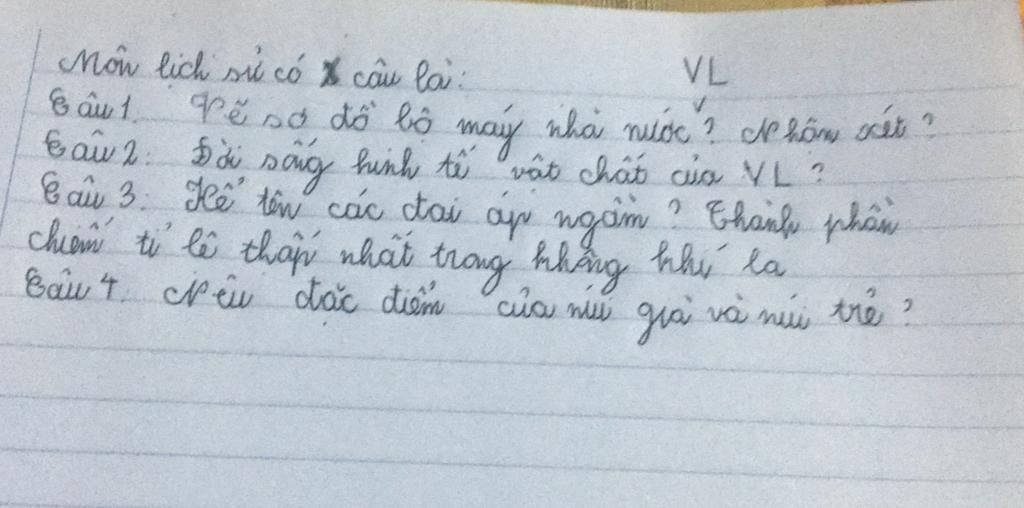 Môn lịch sử có câu là:
VL
Câu 1. Vẽ sơ đồ bộ máy nhà nước? Nhận xét?
Câu 2: Đời sống kinh tế vật chất của VL?
Câu 3: Kể tên các đai áp ngầm? Thành phần
chiếm tỉ lệ thấp nhất trong không khí là
Câu 4. Nêu đặc điểm của núi già và núi trẻ?